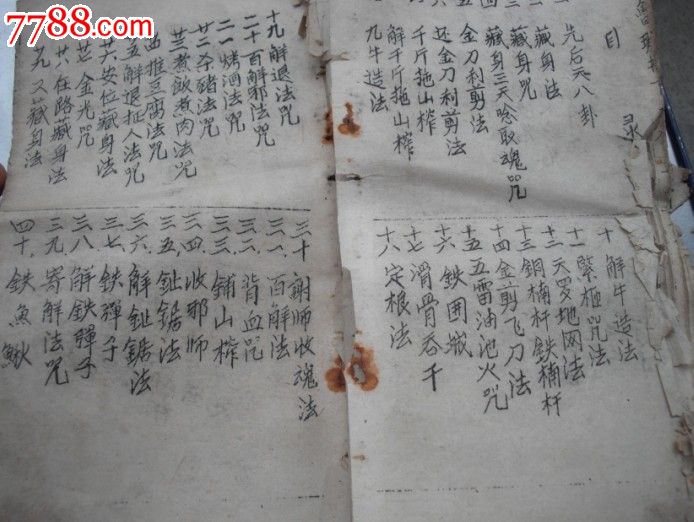 7788.com
目录
先后天八卦
一 藏身法
二 藏身咒
三 藏身三天念取魂咒
四 金刀利剪法
五 还金刀利剪法
千斤拖山榨
解千斤拖山榨
九牛造法
十 解牛造法
十一 紧梱咒法
十二 天罗地网法
十三 铜楠杆鉄楠杆
十四 金剪飞刀法
十五 五雷油池火咒
十六 鉄围城
十七 滑骨吞千
十八 定根法
十九 解退法咒
二十 百解邪法咒
二一 烤酒法咒
廿二 杀豬法咒
廿三 煮飲煮肉法咒
四 推豆腐法咒
五 解退征人法咒
廿六 安位藏身法
廿七 金光咒
廿八 在路藏身法
九 又藏身法
三十 謝师收魂法
三一、百解法
三二、背血咒
三三、鋪山榨
三四、收邪师
三五、鈬鋸法
三六、解鈬鋸法
三七、鉄彈子
三八、解鉄彈子
三九、寄解法咒
四十、鉄魚鰍